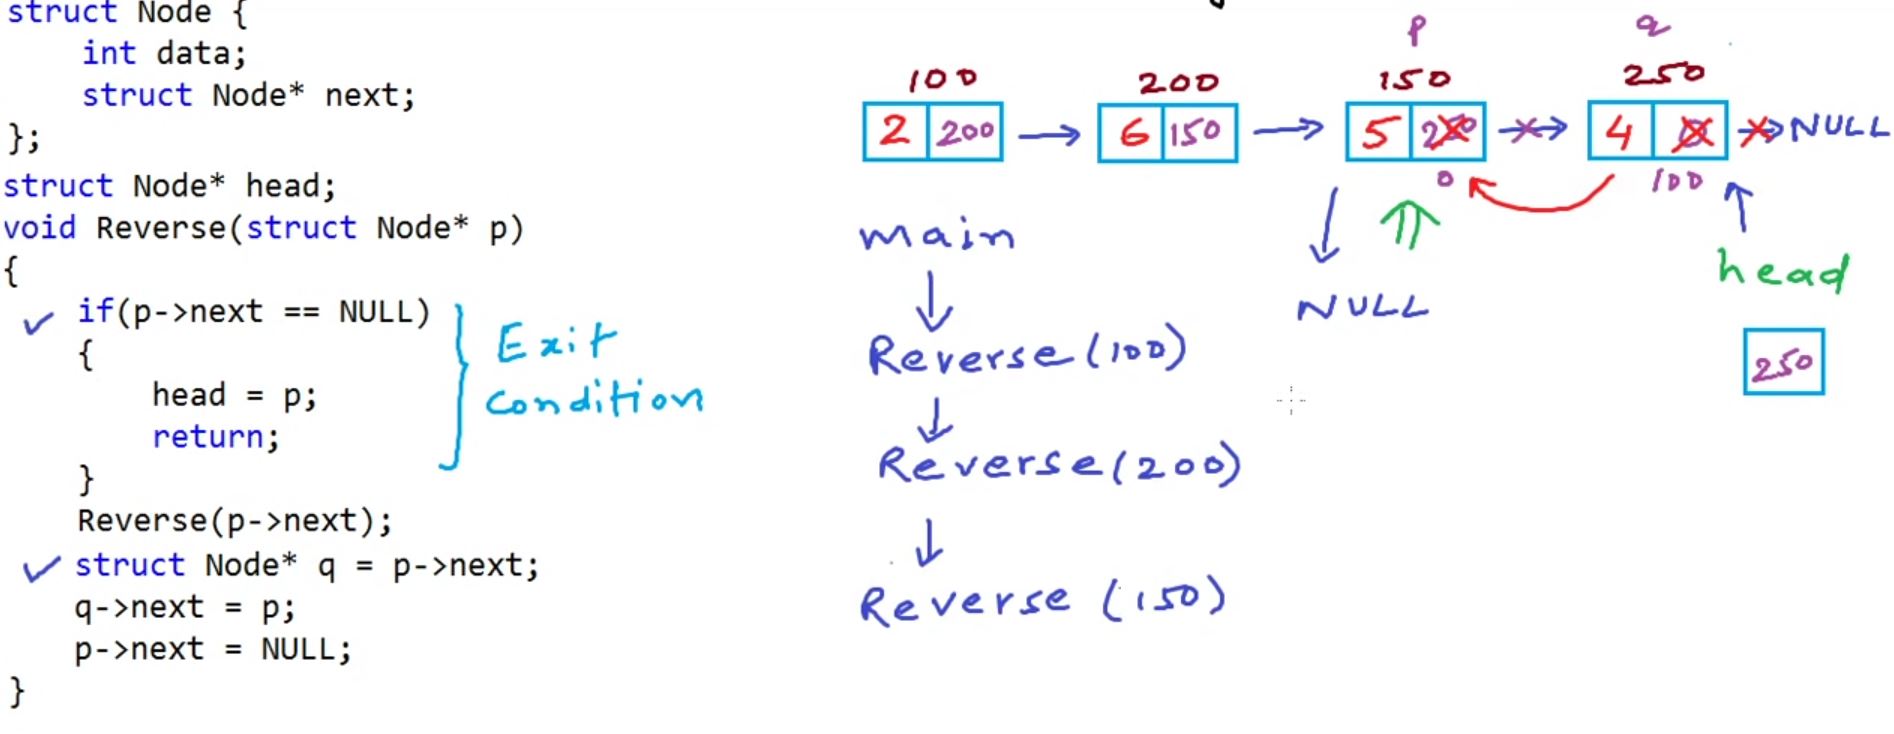 struct Node {
int data;
struct Node* next;
};
struct Node* head;
void Reverse(struct Node* p)
{
if(p->next == NULL)
{
head = p;
return;
}
Reverse(p->next);
struct Node* q = p->next;
q->next = p;
p->next = NULL;
}
Exit
condition
p q
100 200 150 250
2 200 6 150 5 250 4 0 NULL
0 100
main
NULL
head
250
Reverse(100)
Reverse(200)
Reverse (150)